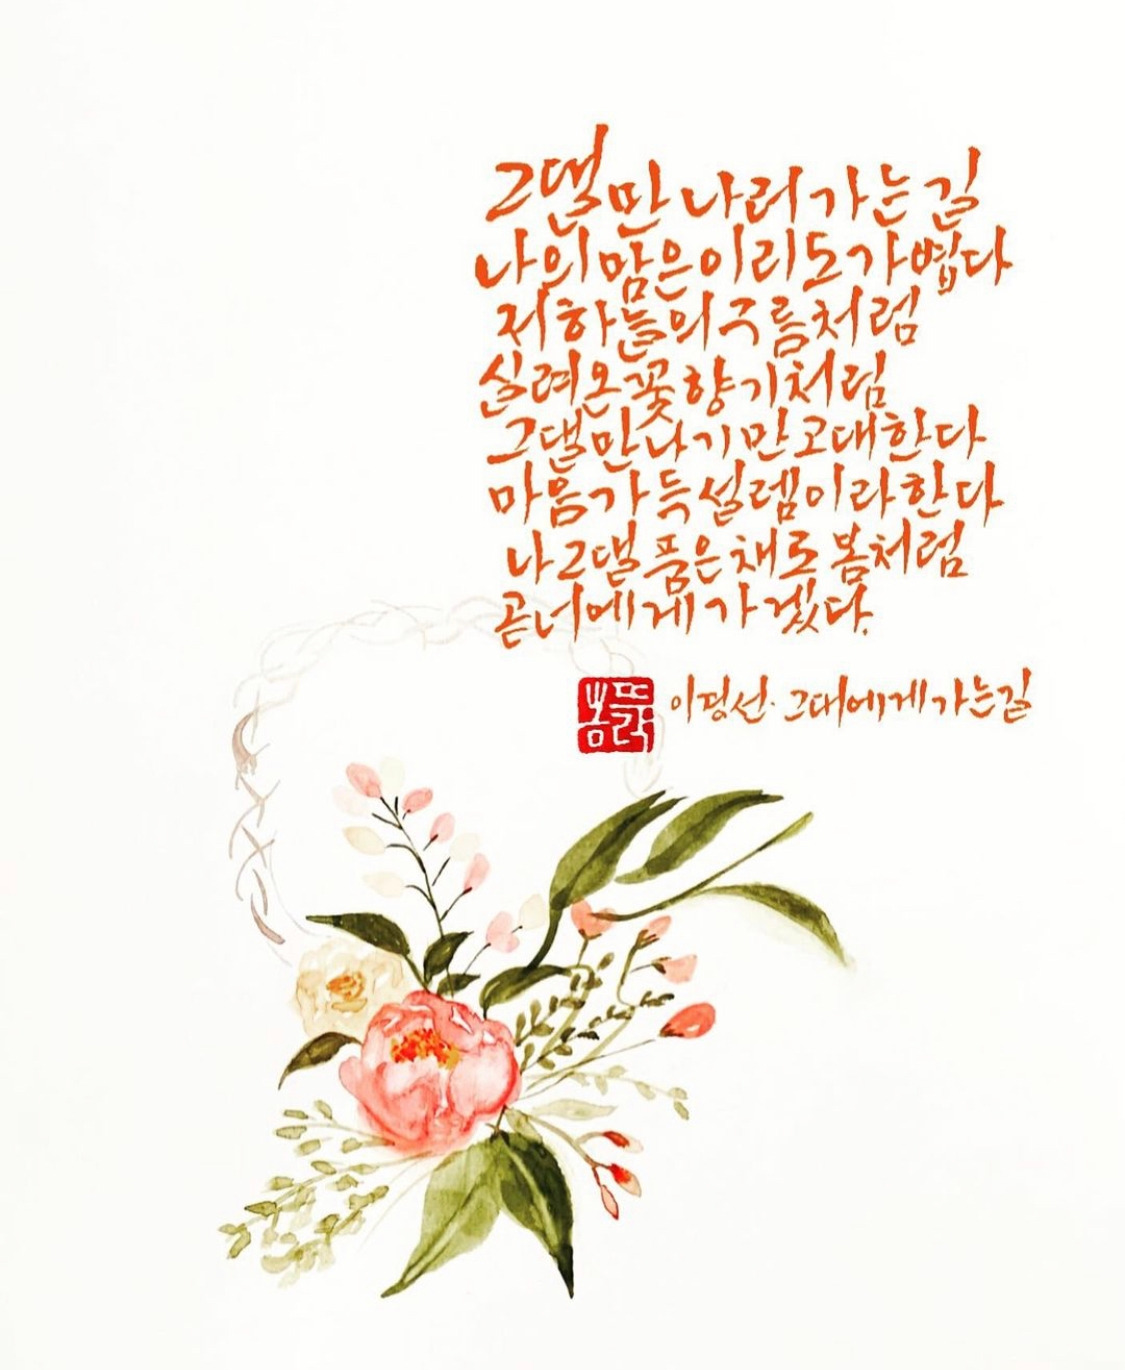 그댈 만나러 가는 길
나의 맘은 이리도 가볍다
저 하늘의 구름처럼
실려온 꽃향기처럼
그댈 만나기만 고대한다
마음 가득 설렘이라 한다
나 그댈 품은 채로 봄처럼
곧 너에게 가겠다.
이경선· 그대에게 가는 길